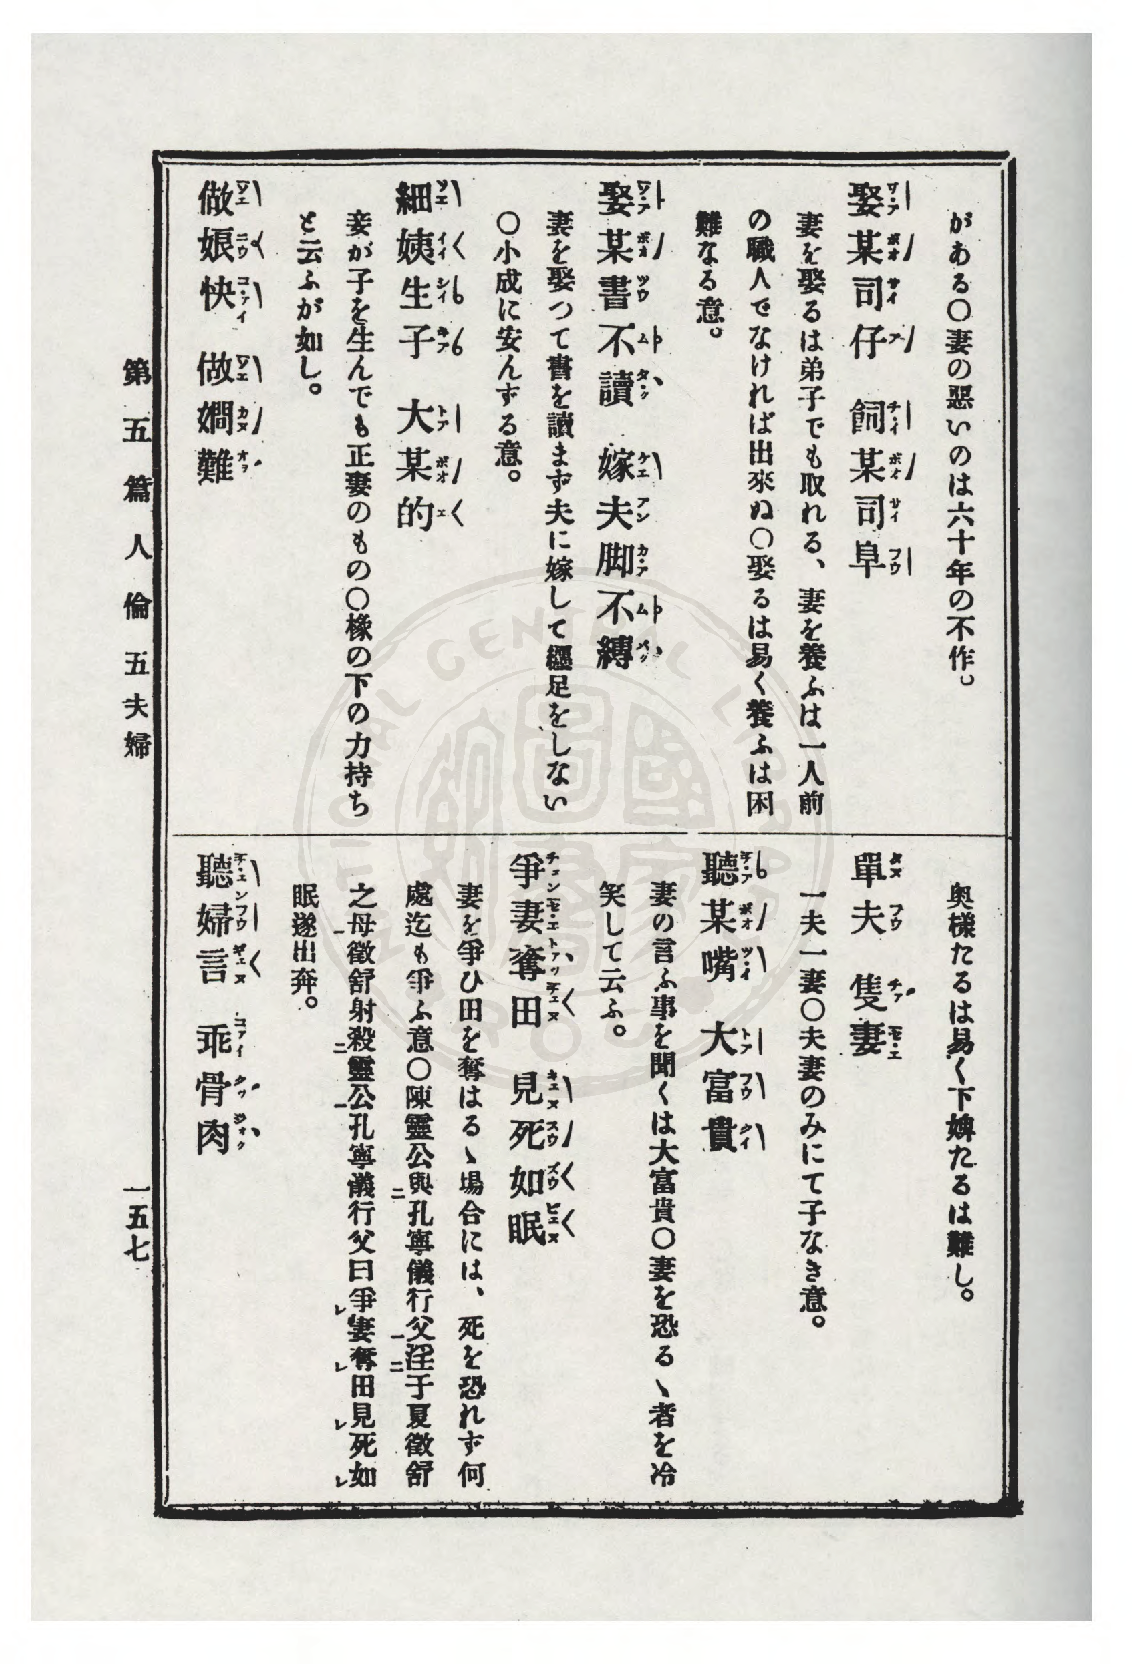 がある〇妻の惡いのは六十年の不作。
娶某司仔　飼某司阜
妻を娶るは弟子でも取れる、妻を養ふは一人前
の職人でなければ出來ぬ〇娶るは易く養ふは困
難なる意。
娶某書不讀　嫁夫脚不縛
妻を娶つて書を讀まず夫に嫁して纒足をしない
〇小成に安んずる意。
細姨生子　大某的
妾が子を生んでも正妻のもの〇椽の下の力持ち
と云ふが如し。
做娘快　做嫺難
奥樣たるは易く下婢たるは難し。
單夫　隻妻
一夫一妻〇夫妻のみにて子なき意。
聽某嘴　大富貴
妻の言ふ事を聞くは大富貴〇妻を恐るゝ者を冷
笑して云ふ。
爭妻奪田　見死如眠
妻を爭ひ田を奪はるゝ場合には、死を恐れず何
處迄も爭ふ意〇陳靈公與孔寧儀行父淫于夏徵舒
之母徵舒射殺靈公孔寧儀行父曰爭妻奪田見死如
眠遂出奔。
聽婦言　乖骨肉
第五篇　人倫　五夫婦
一五七
NATIONAL CENTRAL LIBRARY
R.O.C.